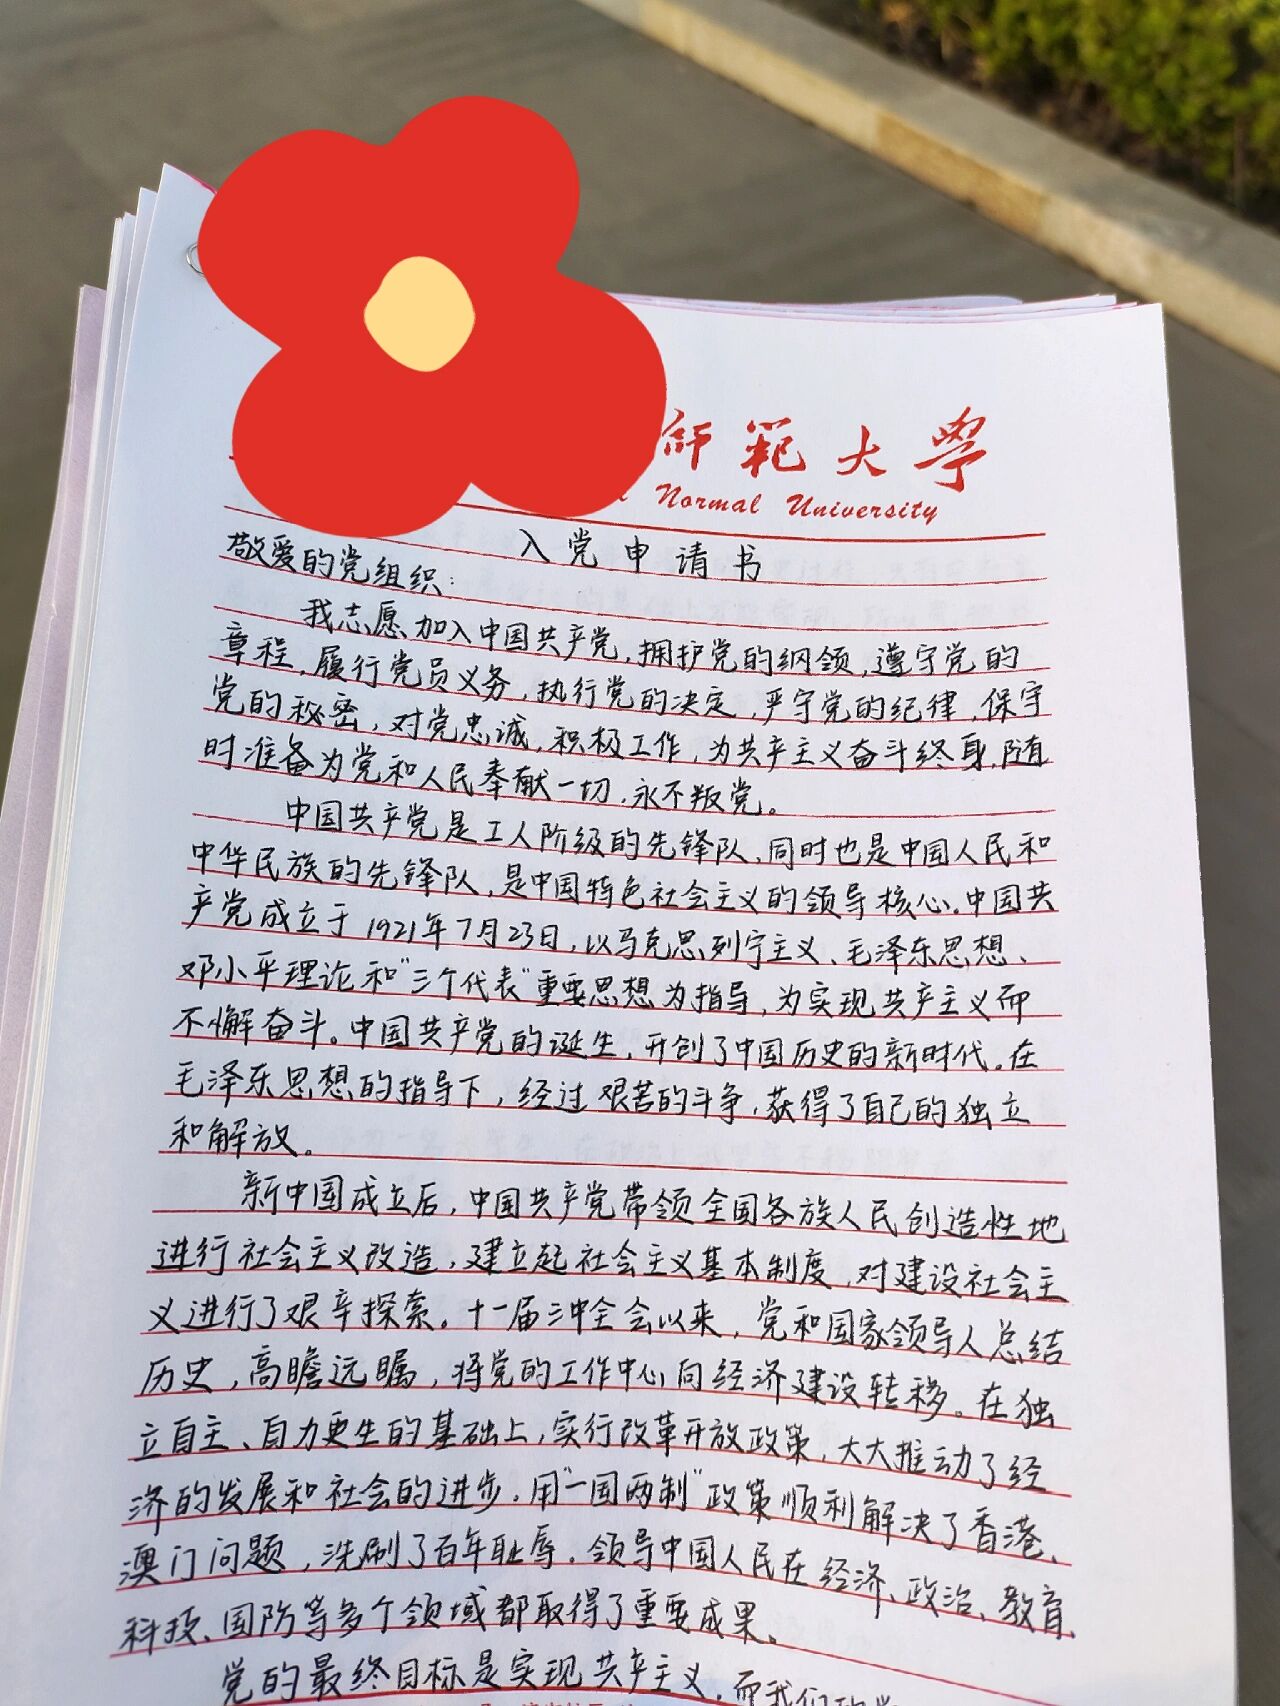 师範大学
Normal University
入党申请书
敬爱的党组织:
我志愿加入中国共产党,拥护党的纲领,遵守党的
章程,履行党员义务,执行党的决定,严守党的纪律,保守
党的秘密,对党忠诚,积极工作,为共产主义奋斗终身,随
时准备为党和人民奉献一切,永不叛党。
中国共产党是工人阶级的先锋队,同时也是中国人民和
中华民族的先锋队,是中国特色社会主义的领导核心。中国共
产党成立于1921年7月23日,以马克思列宁主义、毛泽东思想、
邓小平理论和“三个代表”重要思想为指导,为实现共产主义而
不懈奋斗。中国共产党的诞生,开创了中国历史的新时代。在
毛泽东思想的指导下,经过艰苦的斗争,获得了自己的独立
和解放。
新中国成立后,中国共产党带领全国各族人民创造性地
进行社会主义改造,建立起社会主义基本制度,对建设社会主
义进行了艰辛探索。十一届三中全会以来,党和国家领导人总结
历史,高瞻远瞩,将党的工作中心向经济建设转移。在独
立自主、自力更生的基础上,实行改革开放政策,大大推动了经
济的发展和社会的进步。用“一国两制”政策顺利解决了香港、
澳门问题,洗刷了百年耻辱。领导中国人民在经济、政治、教育、
科技、国防等多个领域都取得了重要成果。
党的最终目标是实现共产主义,而我们的